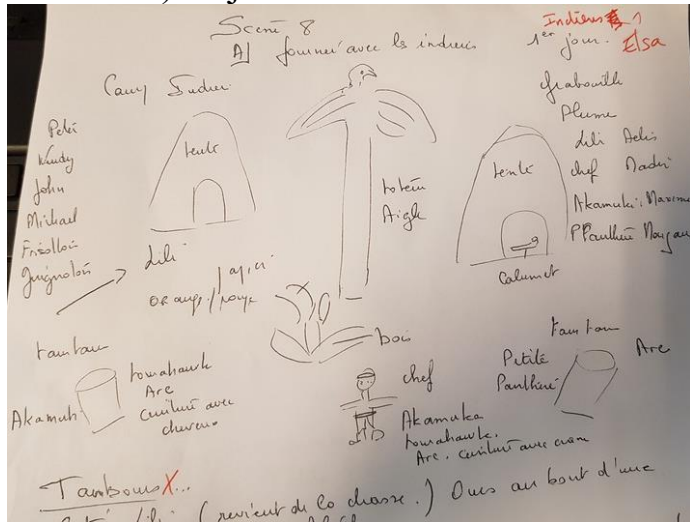 Scene 8
A) Journée avec les indiens
Indiens
1er jour.
Elsa
Camp Indien
Peter
Wendy
John
Michael
Frisollon
Guignolon
tente
totem
Aigle
Grabouille
Plume
Lili
chef
Akamuki: Maxime
PPanthère Morgan
tente
Calumet
Lili
tapis
orange/rouge
bois
tam tam
Akamuki
tomahawk
Arc
ceinture avec
cheveux
chef
Akamuka
tomahawk.
Arc. ceinture avec crane
tam tam
Petite
Panthère
Arc
Tambours X...
(revient de la chasse.) Ours au bout d'une